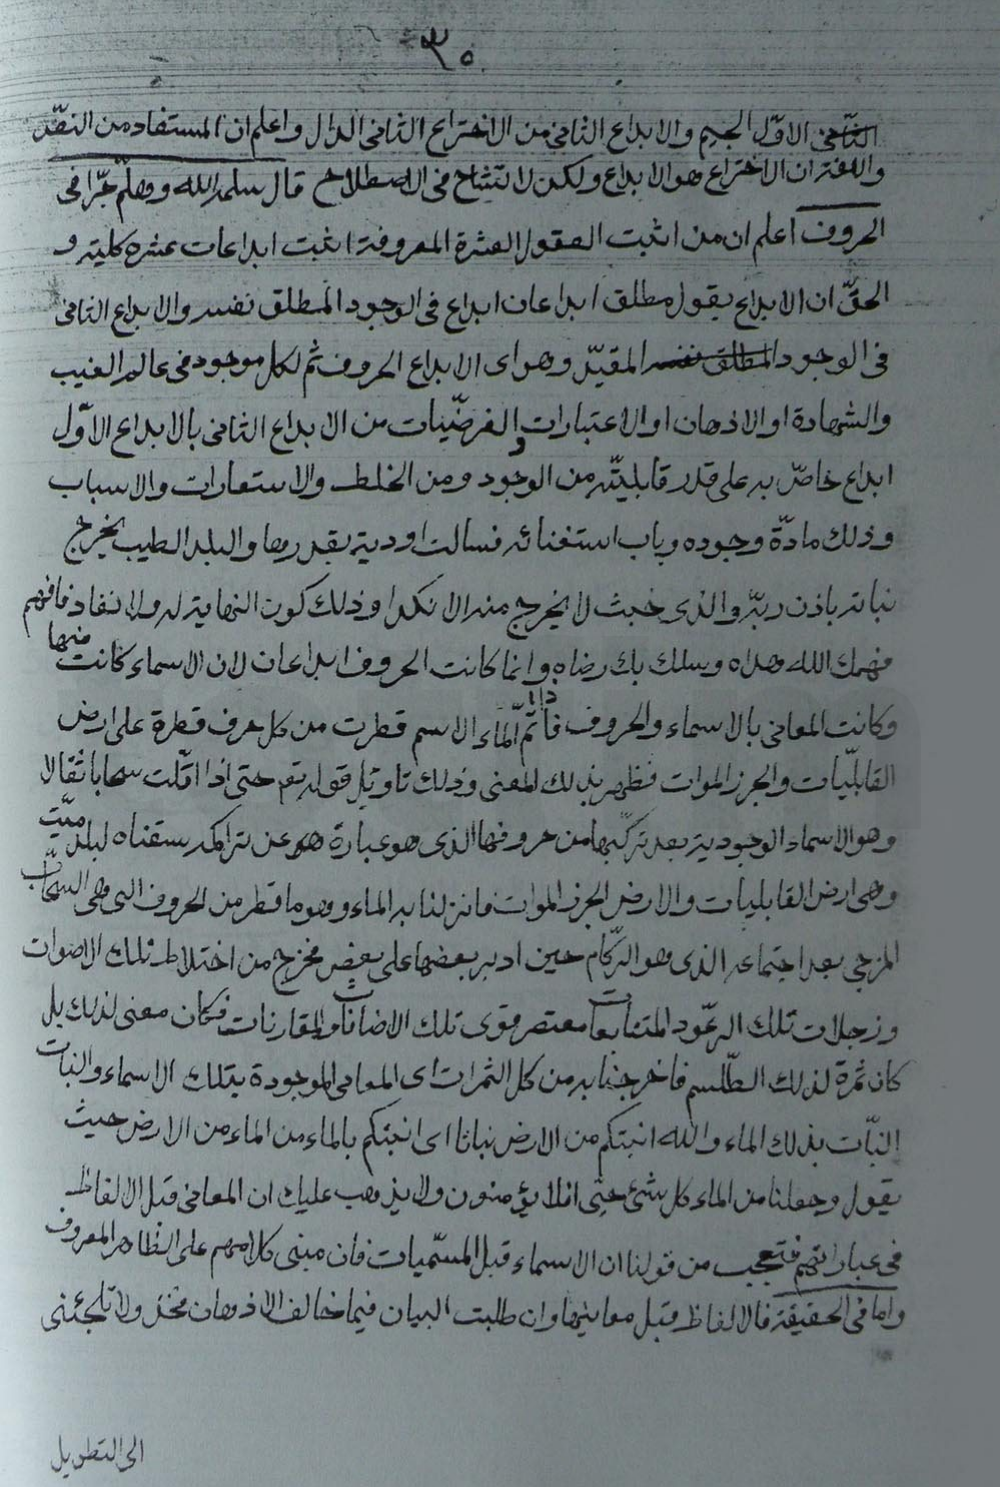 ٣٥
الثانى الاوّل الجيم والابداع الثانى من الاختراع الثانى الدال واعلم ان المستفاد من النقّر
والاقتران الاختراع هو الابداع ولكن لا تشاح فى الاصطلاح قال سلمه الله وهلم جرّا فى
الحروف اعلم ان من اثبت العقول العشرة المعروفة اثبت ابداعات عشرة كلية و
الحقّ ان الابداع بقول مطلق ابداعان ابداع فى الوجود المطلق نفسه والابداع الثانى
فى الوجود المطلق نفسه المقيّد وهو اى الابداع الحروف ثم لكل موجود فى عالم الغيب
والشهادة او الاذهان او الاعتبارات والفرضيّات من الابداع الثانى بالابداع الاوّل
ابداع خاصّ به على قدر قابليّته من الوجود ومن الخلط والاستعارات والاسباب
وذلك مادّة وجوده وباب استغنائه فسالت اودية بقدرها والبلد الطيب يخرج
نباته باذن ربّه والذى خبث لا يخرج منه الا نكدا وذلك كون النهاية له ولا نفاد فافهم
فهمك الله هداه وسلك بك رضاه وانما كانت الحروف ابداعان لان الاسماء كانت منها
وكانت المعانى بالاسماء والحروف فاذا تمّ الماء الاسم قطرت من كل حرف قطرة على ارض
القابليّات والجرز الموات فظهر بذلك المعنى وذلك تاويل قوله تعم حتى اذا اقلّت سحابا ثقالا
وهو الاسماء الوجودية بعد تركّبها من حروفها الذى هو عبارة هو عن تراكمه سقناه لبلد ميّت
وهى ارض القابليات والارض الجرز الموات فانزلنا به الماء وهو ما قطر من الحروف التى هى السحاب
المزجى بعد اجتماعه الذى هو الرّكام حين ادبر بعضها على بعض مخرج من اختلاط تلك الاصوات
وزجلات تلك الرعود المتتابعات معتصر قوى تلك الاضافات والمقارنات فكان معنى لذلك بل
كان ثمرة لذلك الطّلسم فاخرجنا به من كل الثمرات اى المعانى الموجودة بتلك الاسماء والنبات
النبّات بذلك الماء والله انبتكم من الارض نباتا اى انبتكم بالماء من الماء من الارض حيث
يقول وجعلنا من الماء كل شئ حيّ افلا يؤمنون ولا يذهب عليك ان المعانى قبل الالفاظ
فى عباراتهم فتعجب من قولنا ان الاسماء قبل المسمّيات فان مبنى كلامهم على الظاهر المعروف
واما فى الحقيقة فالالفاظ قبل معانيها وان طلبت البيان فيما خالف الاذهان فخذ ولا تلجئنى
الى التطويل